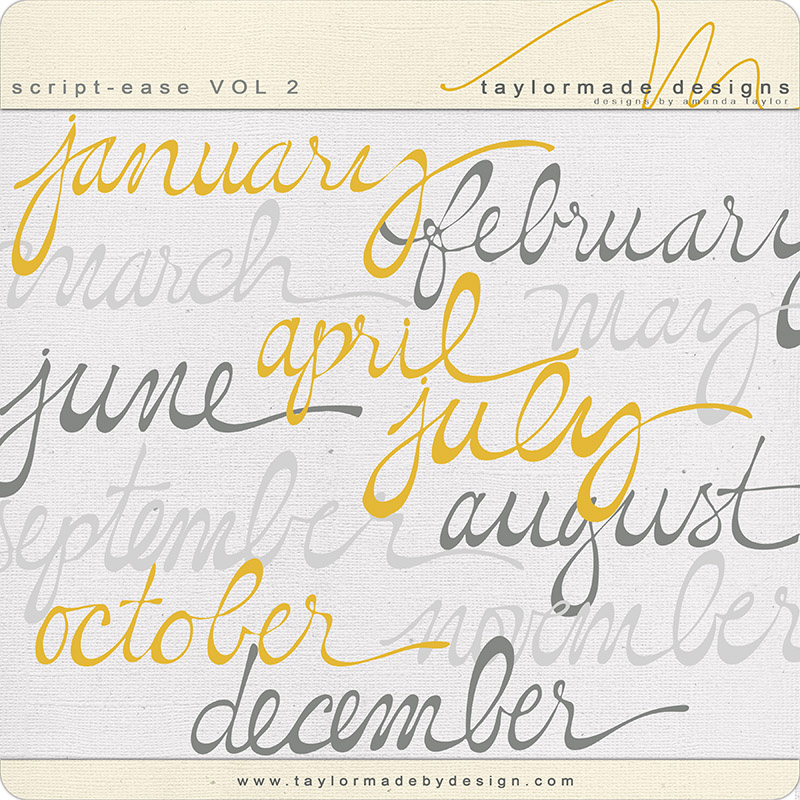 script-ease VOL 2
taylormade designs
designs by amanda taylor
january
february
march
may
april
june
july
september
august
october
november
december
www.taylormadebydesign.com